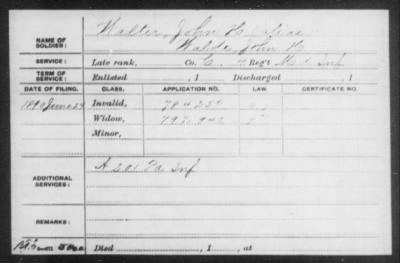 NAME OF SOLDIER: Walter, John H. alias
Walde, John H.
SERVICE: Late rank, Co. C, 7 Reg't Md Inf
TERM OF SERVICE: Enlisted , 1 Discharged , 1
DATE OF FILING. CLASS. APPLICATION NO. LAW. CERTIFICATE NO.
1890 June 24 Invalid, 784250
Widow, 797942
Minor,
ADDITIONAL SERVICES: A 201 Pa Inf
REMARKS:
Died , 1 , at